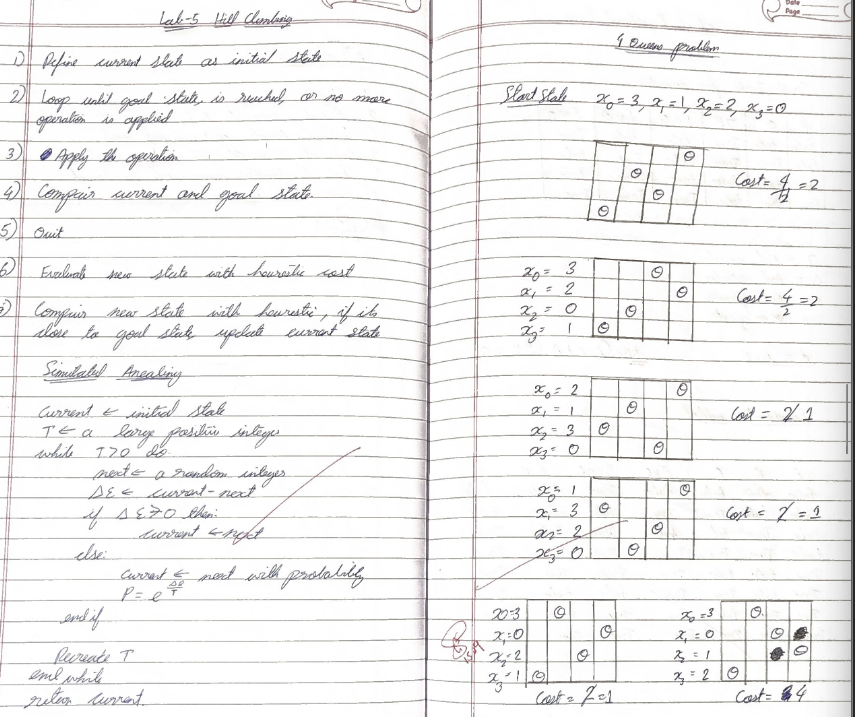 Lab-5 Hill Climbing
1) Define current state as initial state
2) Loop until goal state, is reached, or no more
operation is applied
3) Apply the operation
4) Compair current and goal state.
5) Quit
6) Evaluate new state with hourestic cost
Compair new state with hourestic, if its
close to goal state, update current state
Simulated Anealing
Current ← initial state
T ← a large positive integer
while T>0 do
next ← a random integer
ΔE ← current-next
if ΔE>0 then:
current ← next
else:
current ← next with probability
P = e^(ΔE/T)
end if
T
end while
return current
Date
Page
4 Queens problem
Start State x₀ = 3, x₁ = 1, x₂ = 2, x₃ = 0
Cost = 4/2 = 2
x₀ = 3
x₁ = 2
x₂ = 0
x₃ = 1
Cost = 4/2 = 2
x₀ = 2
x₁ = 1
x₂ = 3
x₃ = 0
Cost = 2 1
x₀ = 1
x₁ = 3
x₂ = 2
x₃ = 0
Cost = 2 = 1
x0=3
x₁=0
x₂=2
x₃=1
Cost = 2 = 1
x₀ = 3
x₁ = 0
x₂ = 1
x₃ = 2
Cost = 4